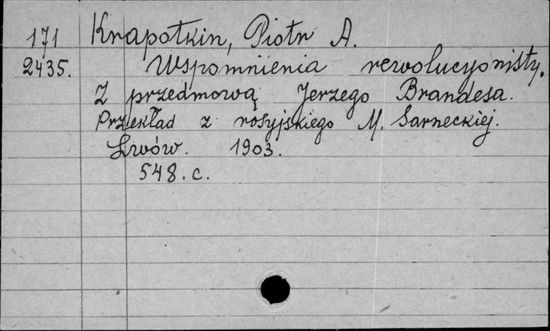 171 Krapotkin, Piotr A.
2435. Wspomnienia rewolucyonisty.
Z przedmową Jerzego Brandesa.
Przekład z rosyjskiego M. Sarneckiej.
Lwów. 1903.
548. c.